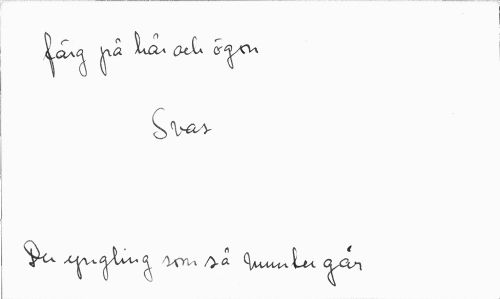 färg på hår och ögon
Svar
Du yngling som så munter går